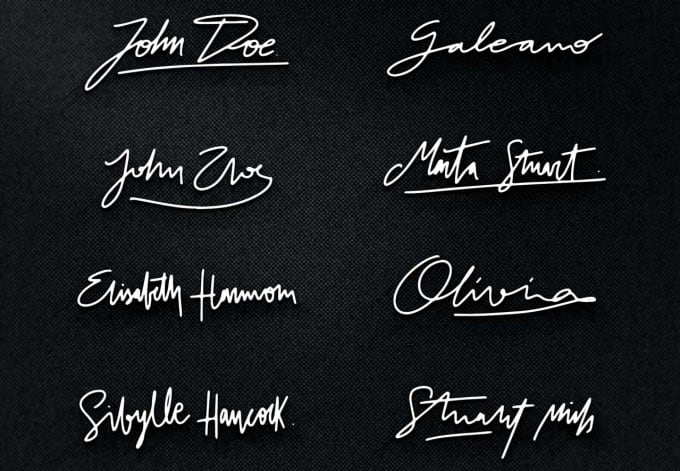 John Doe.
Galeano
John
Marta Stuart.
Elisabeth Harmom
Olivia
Sibylle Hancock.
Stuart